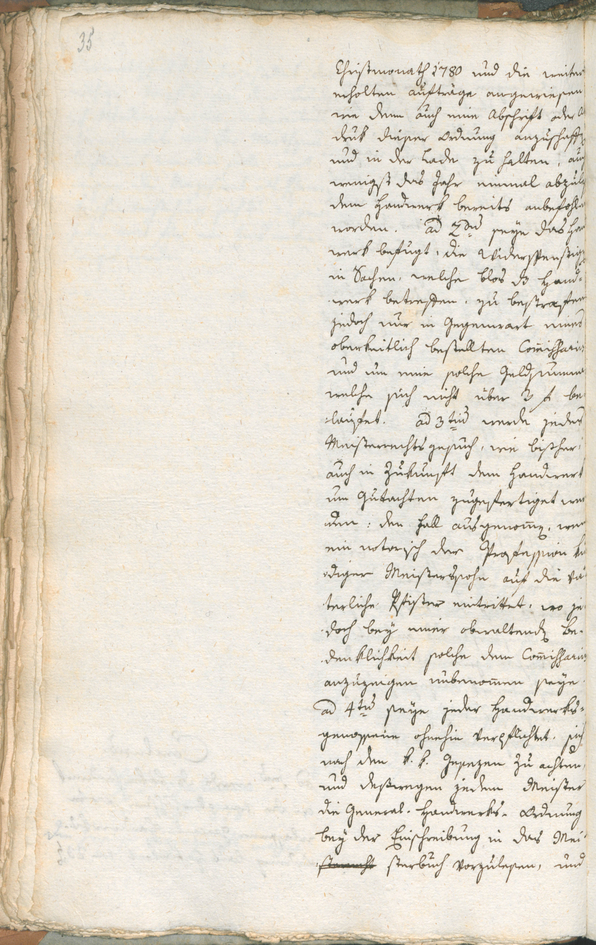 35
Christmonath 1780 und die weiter
erholten aufträge angewiesen
wie dann auch eine Abschrift oder A
druk dieser Ordnung anzuschaffe
und in der Lade zu halten, auch
wenigst das Jahr einmal abzule
dem Handwerk bereits anbefohle
worden. ad 2dum seye das Ha
werk befugt, die Widerspenstige
in Sachen, welche blos das Hand-
werk betreffen, zu bestraffen
jedoch nur in Gegenwart eines
oberkeitlich bestellten Commissarii
und um eine solche Geldsumme
welche sich nicht über 3 f be-
lauffet. ad 3tium werde jedes
Meisterrechtsgesuch, wie bisher,
auch in Zukunft dem Handwerk
um Gutachten zugefertiget wer
den; den Fall ausgenomen, wen
ein notorisch der Profession kü
diger Meisterssohn auf die vä
terliche Pfister eintrittet, wo je
doch bey einer obwaltenden be-
denklichkeit solche dem Commissario
anzuzeigen unbenommen seye.
ad 4tum seye jeder Handwerks-
genossene ohnehin verpflichtet, sich
nach den k. k. Gesezen zu achten,
und deßwegen jedem Meister
die General-Handwerks-Ordnung
bey der Einschreibung in das Mei-
sterbuch vorzulesen, und